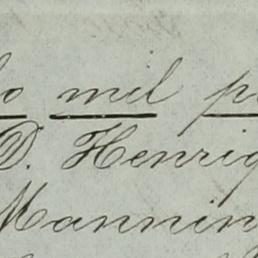 mil
D. Henriq
Mannin